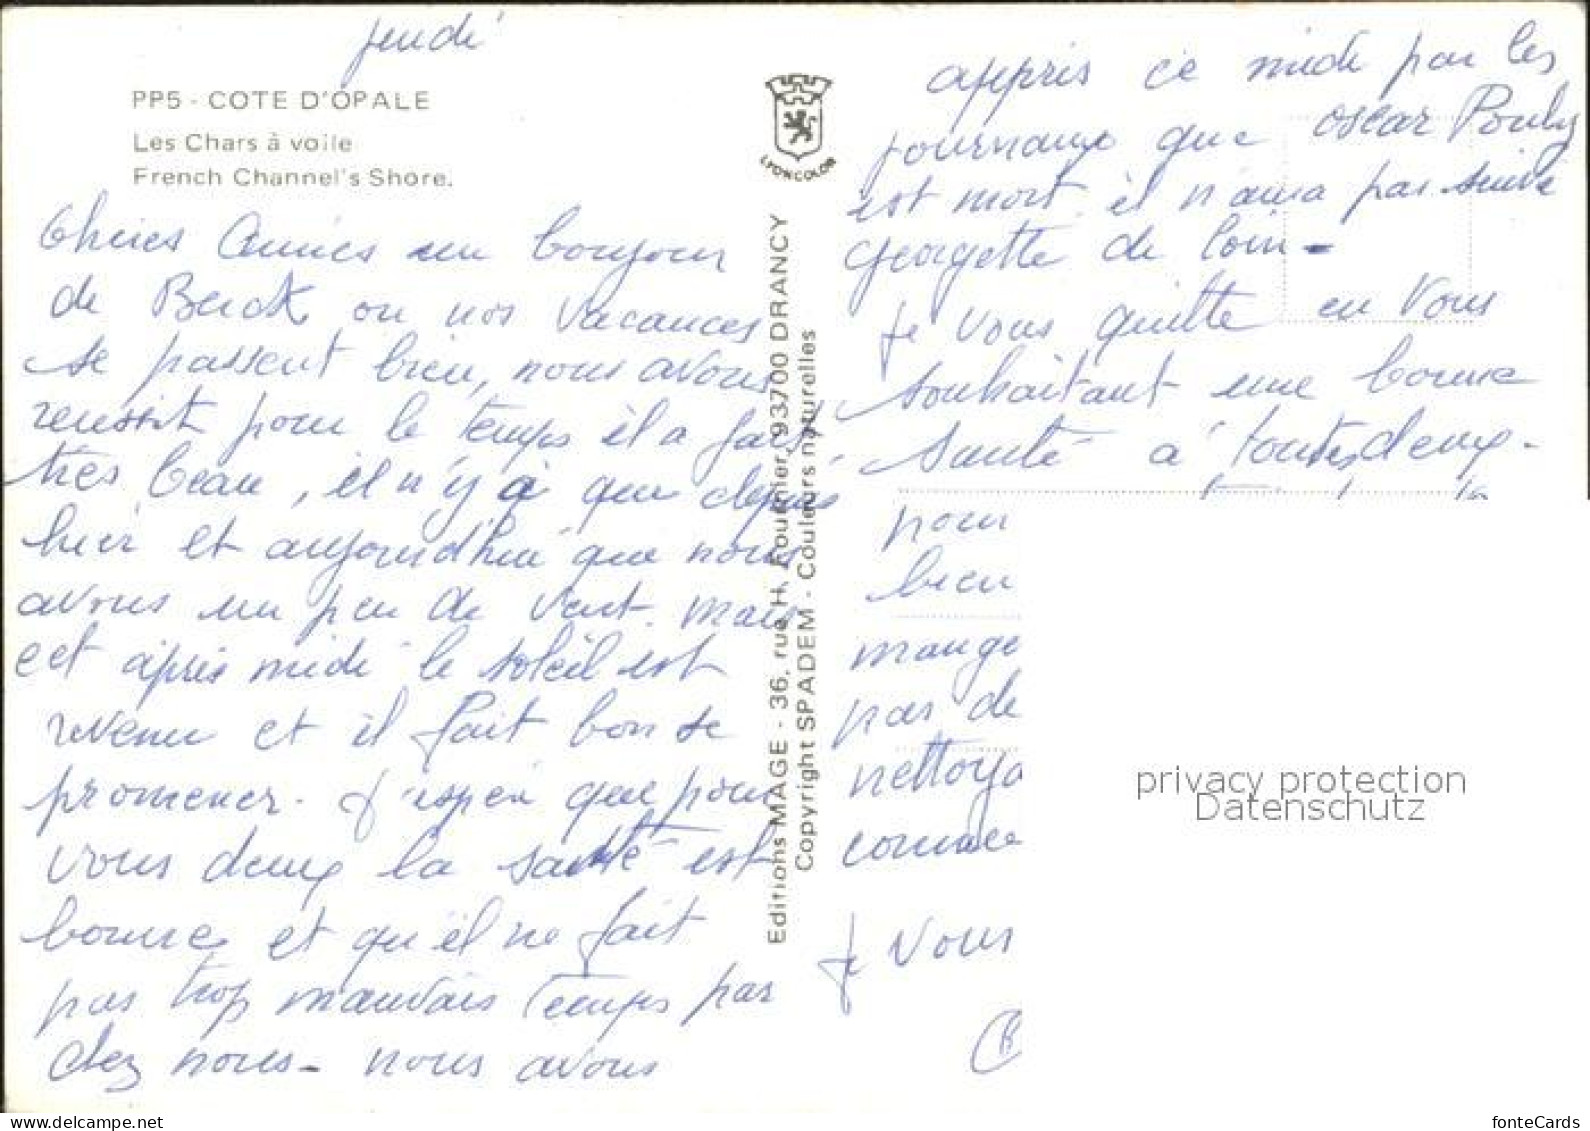 jeudi
PP5 - COTE D'OPALE
Les Chars à voile
French Channel's Shore.
Chères Amies un bonjour
de Berck ou nos vacances
se passent bien, nous avons
reussit pour le temps il a fait
très beau, il n'y a que depuis
hier et aujourd'hui que nous
avons un peu de vent. mais
cet après midi le soleil est
revenu et il fait bon se
promener. J'espère que pour
vous deux la santé est
bonne et qu'il ne fait
pas trop mauvais temps par
chez nous - nous avons
LYONCOLOR
Editions MAGE - 36, rue H. Fournier, 93700 DRANCY
Copyright SPADEM - Couleurs naturelles
appris ce midi par les
journaux que oscar Pouly
est mort il n'aura pas suivi
Georgette de loin -
Je vous quitte en vous
souhaitant une bonne
santé a toutes deux -
pour
bien
mange
pas de
nettoya
comme
Je vous
privacy protection
Datenschutz
fonteCards